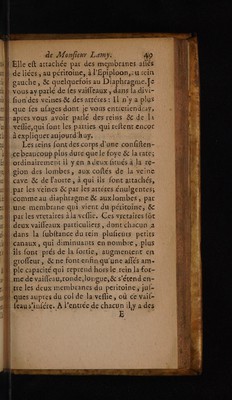 de Monsieur Lamy. 49
Elle est attachée par des membranes assés
deliées, au péritoine, à l'Epiploon, au rein
gauche, & quelquefois au Diaphragme. Je
vous ay parlé de ses vaisseaux, dans la divi-
sion des veines & des artéres: il n'y a plus
que ses usages dont je vous entretiendray,
apres vous avoir parlé des reins & de la
vessie, qui sont les parties qui restent encor
à expliquer aujourd'huy.
Les reins sont des corps d'une consisten-
ce beaucoup plus dure que le foye & la rate;
ordinairement il y en a deux situés à la re-
gion des lombes, aux costés de la veine
cave & de l'aorte, à qui ils sont attachés,
par les veines & par les artéres émulgentes,
comme au diaphragme & aux lombes, par
une membrane qui vient du péritoine, &
par les vretaires à la vessie. Ces vretaires sôt
deux vaisseaux particuliers, dont chacun a
dans la substance du rein plusieurs petits
canaux, qui diminuants en nombre, plus
ils sont prés de la sortie, augmentent en
grosseur, & ne font enfin qu'une assés am-
ple capacité qui reprend hors le rein la for-
me de vaisseau, ronde, longue, & s'étend en-
tre les deux membranes du peritoine, jus-
ques aupres du col de la vessie, où ce vais-
seau s'insére. A l'entrée de chacun il y a des
E